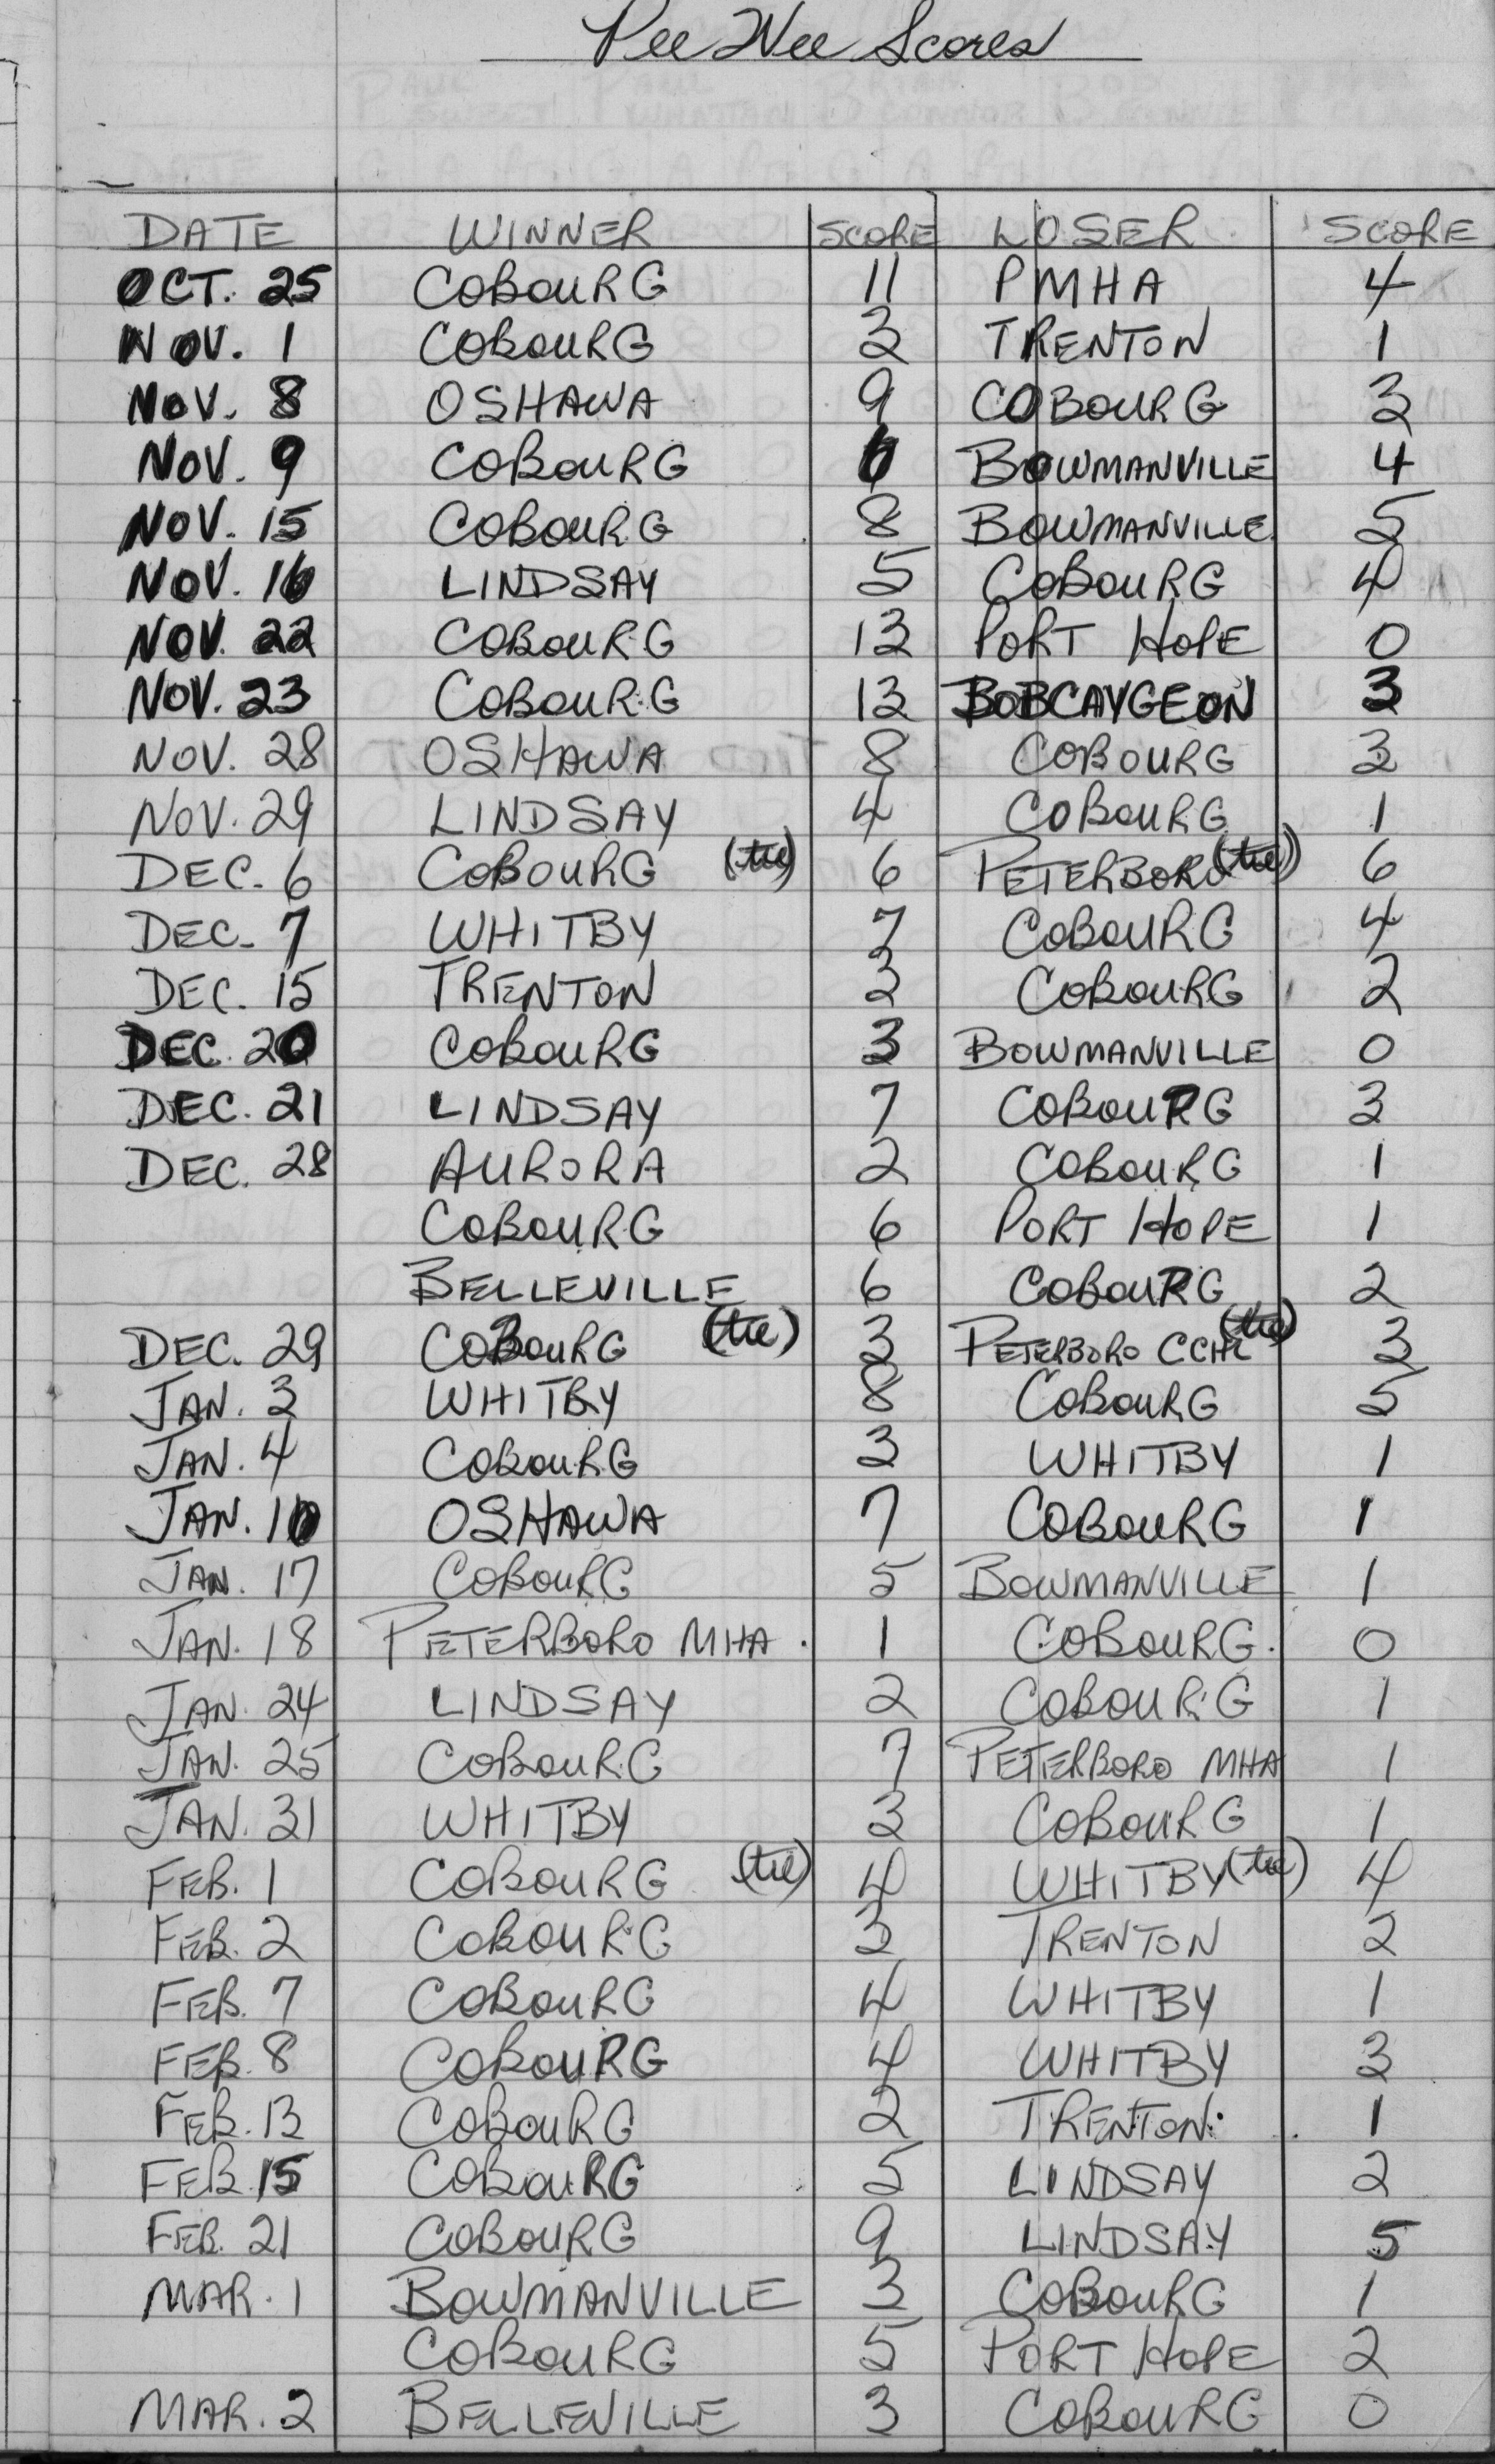 Pee Wee Scores
DATE WINNER SCORE LOSER SCORE
OCT. 25 COBOURG 11 PMHA 4
NOV. 1 COBOURG 3 TRENTON 1
NOV. 8 OSHAWA 9 COBOURG 3
NOV. 9 COBOURG 6 BOWMANVILLE 4
NOV. 15 COBOURG 8 BOWMANVILLE 5
NOV. 16 LINDSAY 5 COBOURG 4
NOV. 22 COBOURG 13 PORT HOPE 0
NOV. 23 COBOURG 13 BOBCAYGEON 3
NOV. 28 OSHAWA 8 COBOURG 3
NOV. 29 LINDSAY 4 COBOURG 1
DEC. 6 COBOURG (tie) 6 PETERBORO (tie) 6
DEC. 7 WHITBY 7 COBOURG 4
DEC. 15 TRENTON 3 COBOURG 2
DEC. 20 COBOURG 3 BOWMANVILLE 0
DEC. 21 LINDSAY 7 COBOURG 3
DEC. 28 AURORA 2 COBOURG 1
COBOURG 6 PORT HOPE 1
BELLEVILLE 6 COBOURG 2
DEC. 29 COBOURG (tie) 3 PETERBORO CCHL (tie) 3
JAN. 3 WHITBY 8 COBOURG 5
JAN. 4 COBOURG 3 WHITBY 1
JAN. 10 OSHAWA 7 COBOURG 1
JAN. 17 COBOURG 5 BOWMANVILLE 1
JAN. 18 PETERBORO MHA. 1 COBOURG. 0
JAN. 24 LINDSAY 2 COBOURG 1
JAN. 25 COBOURG 7 PETERBORO MHA 1
JAN. 31 WHITBY 3 COBOURG 1
FEB. 1 COBOURG (tie) 4 WHITBY (tie) 4
FEB. 2 COBOURG 3 TRENTON 2
FEB. 7 COBOURG 4 WHITBY 1
FEB. 8 COBOURG 4 WHITBY 3
FEB. 13 COBOURG 2 TRENTON. 1
FEB. 15 COBOURG 5 LINDSAY 2
FEB. 21 COBOURG 9 LINDSAY 5
MAR. 1 BOWMANVILLE 3 COBOURG 1
COBOURG 5 PORT HOPE 2
MAR. 2 BELLEVILLE 3 COBOURG 0